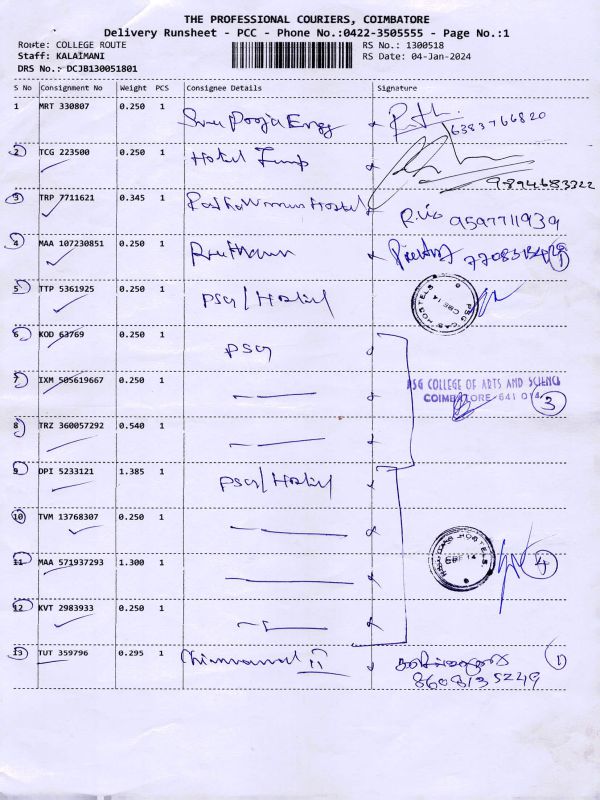 THE PROFESSIONAL COURIERS, COIMBATORE
Delivery Runsheet - PCC - Phone No.:0422-3505555 - Page No.:1
Route: COLLEGE ROUTE
Staff: KALAIMANI
DRS No.: DCJB130051801
RS No.: 1300518
RS Date: 04-Jan-2024
S No Consignment No Weight PCS Consignee Details Signature
1 MRT 330807 0.250 1 Sree Pooja Engg
6383766820
2 TCG 223500 0.250 1 Hotel
9894683322
3 TRP 7711621 0.345 1 Hostel
9597711939
4 MAA 107230851 0.250 1
5 TTP 5361925 0.250 1 PSG/Hostel
PSG CAS HOSTELS CBE-14
6 KOD 63769 0.250 1 PSG
7 IXM 505619667 0.250 1
PSG COLLEGE OF ARTS AND SCIENCE
COIMBATORE-641 014
3
8 TRZ 360057292 0.540 1
9 DPI 5233121 1.385 1 PSG/Hostel
10 TVM 13768307 0.250 1
11 MAA 571937293 1.300 1
PSG CAS HOSTELS CBE-14
4
12 KVT 2983933 0.250 1
13 TUT 359796 0.295 1
1
8608135249